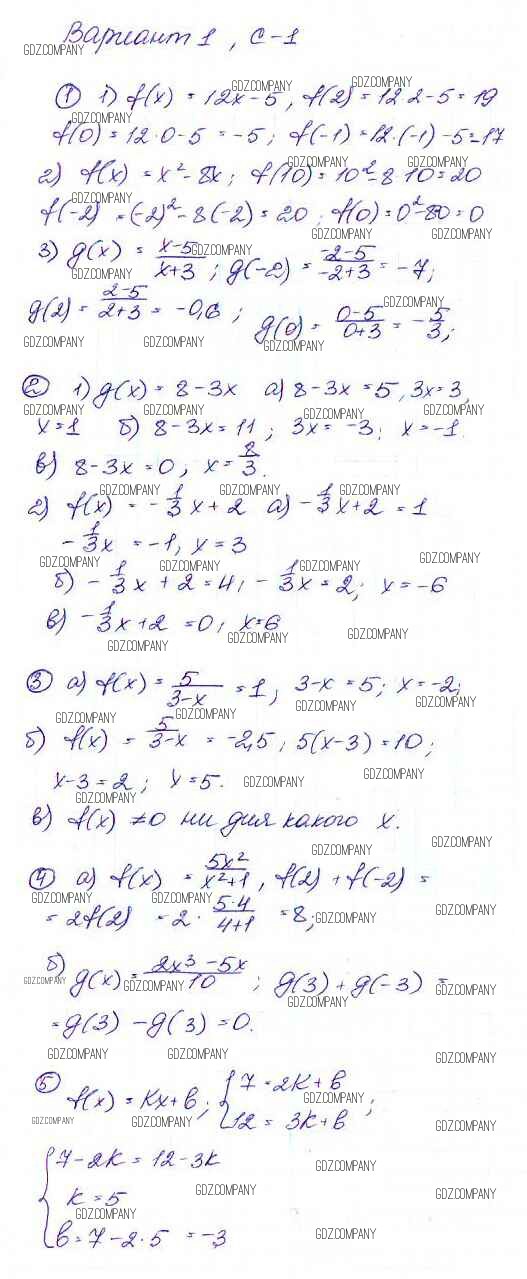 Вариант 1, С-1
① 1) f(x) = 12x - 5, f(2) = 12·2 - 5 = 19
f(0) = 12·0 - 5 = -5; f(-1) = 12·(-1) - 5 = 17
2) f(x) = x² - 8x; f(10) = 10² - 8·10 = 20
f(-2) = (-2)² - 8(-2) = 20; f(0) = 0² - 80 = 0
3) g(x) = (x-5)/(x+3); g(-2) = (-2-5)/(-2+3) = -7;
g(2) = (2-5)/(2+3) = -0,6; g(0) = (0-5)/(0+3) = -5/3;
② 1) g(x) = 8 - 3x а) 8 - 3x = 5, 3x = 3,
x = 1 б) 8 - 3x = 11; 3x = -3; x = -1.
в) 8 - 3x = 0, x = 8/3.
2) f(x) = -1/3 x + 2 а) -1/3 x + 2 = 1
-1/3 x = -1, x = 3
б) -1/3 x + 2 = 4, -1/3 x = 2; x = -6
в) -1/3 x + 2 = 0, x = 6
③ а) f(x) = 5/(3-x) = 1, 3 - x = 5; x = -2;
б) f(x) = 5/(3-x) = -2,5, 5(x-3) = 10;
x - 3 = 2; x = 5.
в) f(x) ≠ 0 ни для какого x.
④ а) f(x) = 5x²/(x²+1), f(2) + f(-2) =
= 2f(2) = 2 · (5·4)/(4+1) = 8;
б) g(x) = (2x³ - 5x)/10; g(3) + g(-3) =
= g(3) - g(3) = 0.
⑤ f(x) = Kx + b; { 7 = 2K + b
12 = 3K + b;
{ 7 - 2K = 12 - 3K
K = 5
b = 7 - 2·5 = -3
GDZ.COMPANY